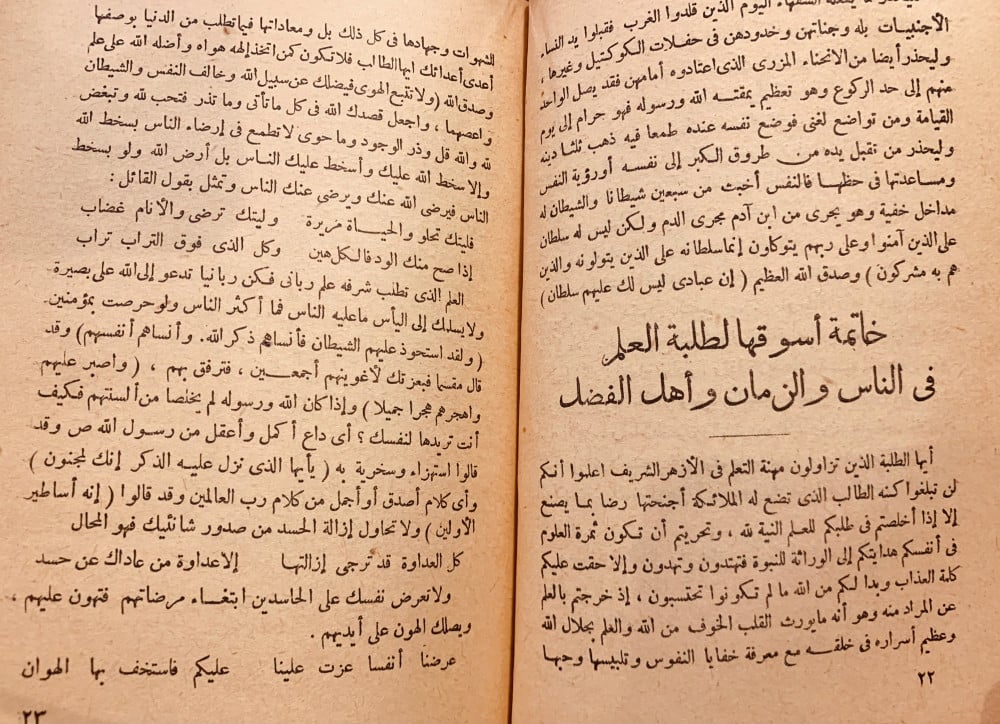 السفهاء اليوم الذين قلدوا الغرب فقبلوا يد النساء
الأجنبيات بله وجناتهن وخدودهن فى حفلات الكوكتيل وغيرها ،
وليحذر أيضا من الانحناء المزرى الذى اعتادوه أمامهن فقد يصل الواحد
منهم إلى حد الركوع وهو تعظيم يمقته الله ورسوله فهو حرام إلى يوم
القيامة ومن تواضع لغنى فوضع نفسه عنده طمعا فيه ذهب ثلثا دينه
وليحذر من تقبل يده من طروق الكبر إلى نفسه أورؤية النفس
ومساعدتها فى حظها فالنفس أخبث من سبعين شيطانا والشيطان له
مداخل خفية وهو يجرى من ابن آدم مجرى الدم ولكن ليس له سلطان
على الذين آمنوا وعلى ربهم يتوكلون إنما سلطانه على الذين يتولونه والذين
هم به مشركون ) وصدق الله العظيم ( إن عبادى ليس لك عليهم سلطان )
خاتمة أسوقها لطلبة العلم
فى الناس والزمان وأهل الفضل
أيها الطلبة الذين تزاولون مهنة التعلم فى الأزهر الشريف اعلموا أنكم
لن تبلغوا كنه الطالب الذى تضع له الملائكة أجنحتها رضا بما يصنع
إلا إذا أخلصتم فى طلبكم للعلم النية لله ، وتحريتم أن تكون ثمرة العلوم
فى أنفسكم هدايتكم إلى الوراثة للنبوة فتهتدون وتهدون وإلا حقت عليكم
كلمة العذاب وبدا لكم من الله ما لم تكونوا تحتسبون ، إذ خرجتم بالعلم
عن المراد منه وهو أنه مايورث القلب الخوف من الله والعلم بجلال الله
وعظيم أسراره فى خلقه مع معرفة خفايا النفوس وتلبيسها وحبها
٢٢
للشهوات وجهادها فى كل ذلك بل ومعاداتها فيما تطلب من الدنيا بوصفها
أعدى أعدائك ايها الطالب فلا تكون كمن اتخذ إلهه هواه وأضله الله على علم
وصدق الله ( ولا تتبع الهوى فيضلك عن سبيل الله وخالف النفس والشيطان
واعصهما ، واجعل قصدك الله فى كل ما تأتى وما تذر فتحب لله وتبغض
لله والله قل وذر الوجود وما حوى لا تطمع فى إرضاء الناس بسخط الله
وإلا سخط الله عليك وأسخط عليك الناس بل أرض الله ولو بسخط
الناس فيرضى الله عنك ويرضى عنك الناس وتمثل بقول القائل :
فليتك تحلو والحياة مريرة وليتك ترضى والأنام غضاب
إذا صح منك الود فالكل هين وكل الذى فوق التراب تراب
العلم الذى تطلب شرفه علم ربانى فكن ربانيا تدعو إلى الله على بصيرة
ولا يسلبك إلى اليأس ماعليه الناس فما أكثر الناس ولو حرصت بمؤمنين
( ولقد استحوذ عليهم الشيطان فأنساهم ذكر الله. وأنساهم أنفسهم ) وقد
قال مقسما فبعزتك لأغوينهم أجمعين ، فترفق بهم ، ( واصبر عليهم
واهجرهم هجرا جميلا ) وإذا كان الله ورسوله لم يخلصا من ألسنتهم فكيف
أنت تريدها لنفسك ؟ أى داع أكمل وأعقل من رسول الله ص وقد
قالوا استهزاء وسخرية به ( يأيها الذى نزل عليه الذكر إنك لمجنون )
وأى كلام أصدق أو أجمل من كلام رب العالمين وقد قالوا ( إنه أساطير
الأولين ) ولا تحاول إزالة الحسد من صدور شانئيك فهو المحال
كل العداوة قد ترجى إزالتها إلا عداوة من عاداك عن حسد
ولا تعرض نفسك على الحاسدين ابتغاء مرضاتهم فتهون عليهم ،
ويصلك الهون على أيديهم .
عرضنا أنفسا عزت علينا عليكم فاستخف بها الهوان
٢٣